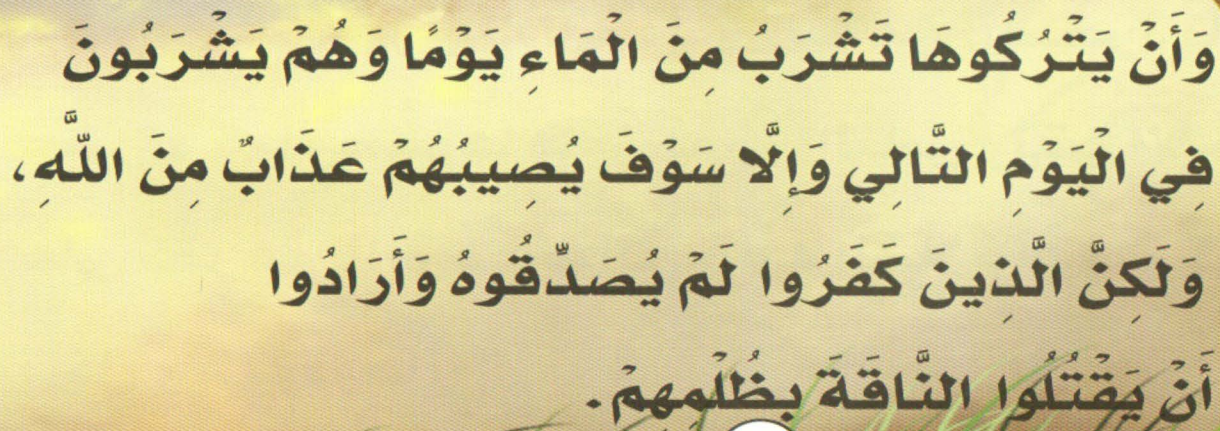 وَأَنْ يَتْرُكُوهَا تَشْرَبُ مِنَ الْمَاءِ يَوْمًا وَهُمْ يَشْرَبُونَ
فِي الْيَوْمِ التَّالِي وَإِلَّا سَوْفَ يُصِيبُهُمْ عَذَابٌ مِنَ اللَّهِ،
وَلَكِنَّ الَّذِينَ كَفَرُوا لَمْ يُصَدِّقُوهُ وَأَرَادُوا
أَنْ يَقْتُلُوا النَّاقَةَ بِظُلْمِهِمْ.